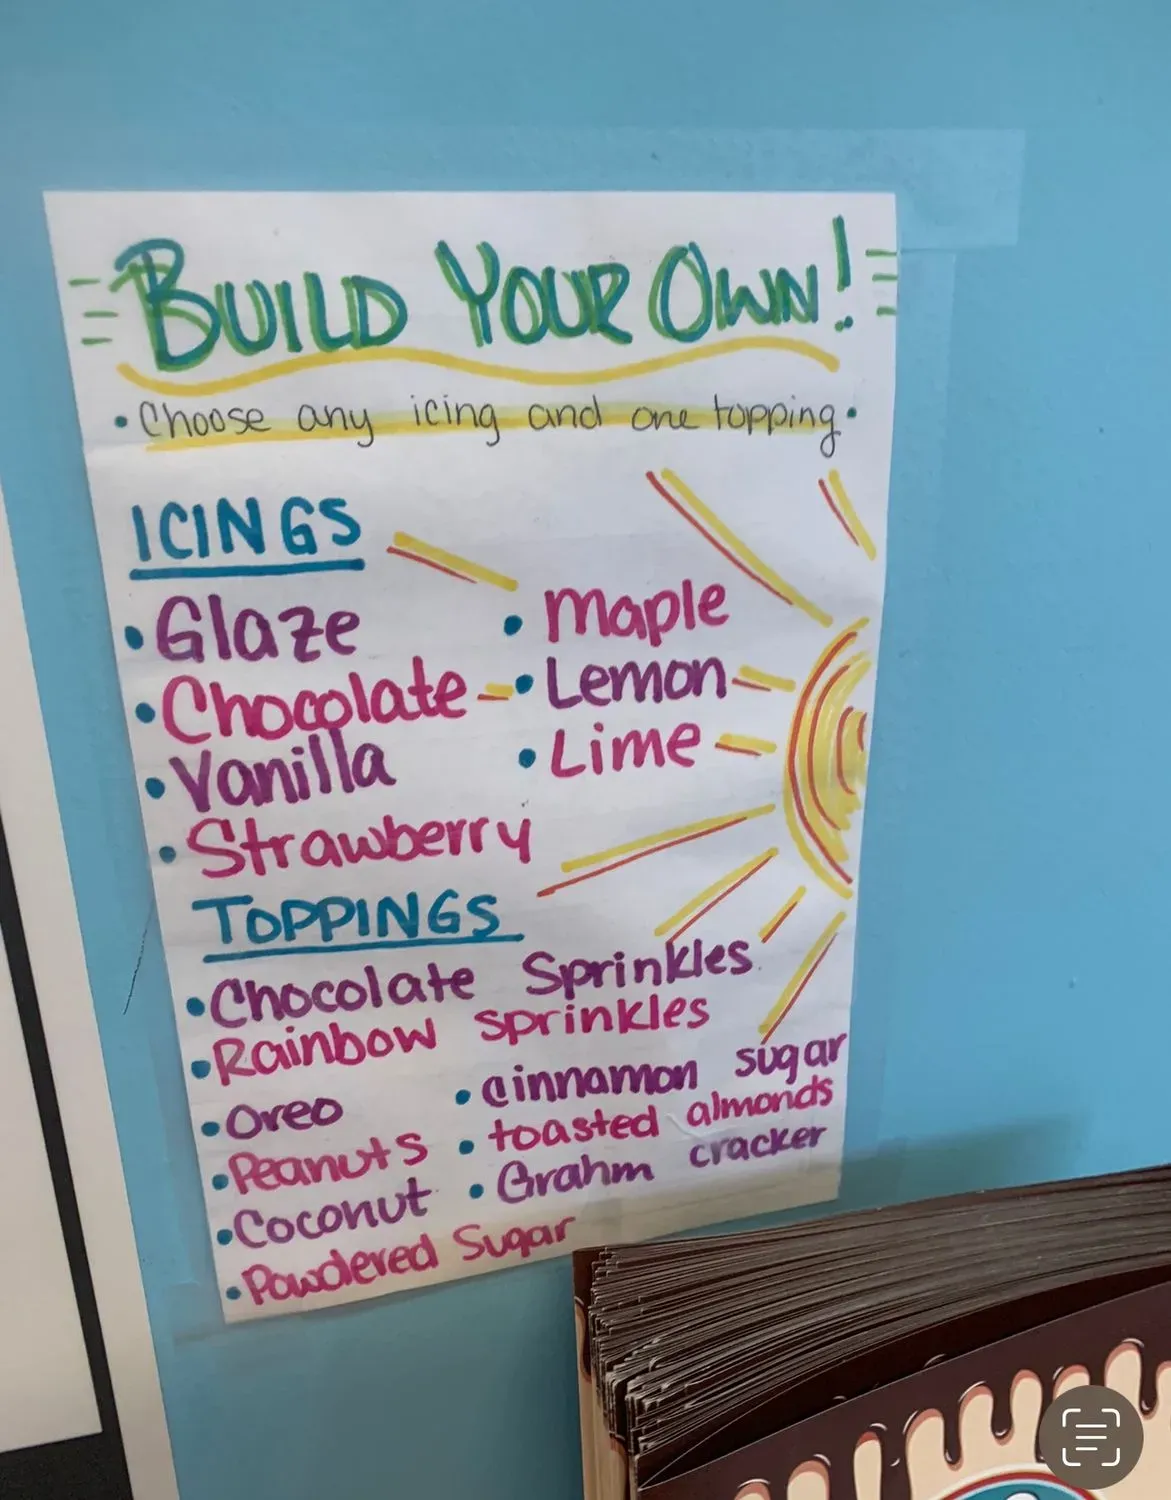 BUILD YOUR OWN!
• Choose any icing and one topping •
ICINGS
• Glaze
• Chocolate
• Vanilla
• Strawberry
• Maple
• Lemon
• Lime
TOPPINGS
• Chocolate Sprinkles
• Rainbow sprinkles
• Oreo
• Peanuts
• Coconut
• Powdered Sugar
• cinnamon sugar
• toasted almonds
• Grahm cracker